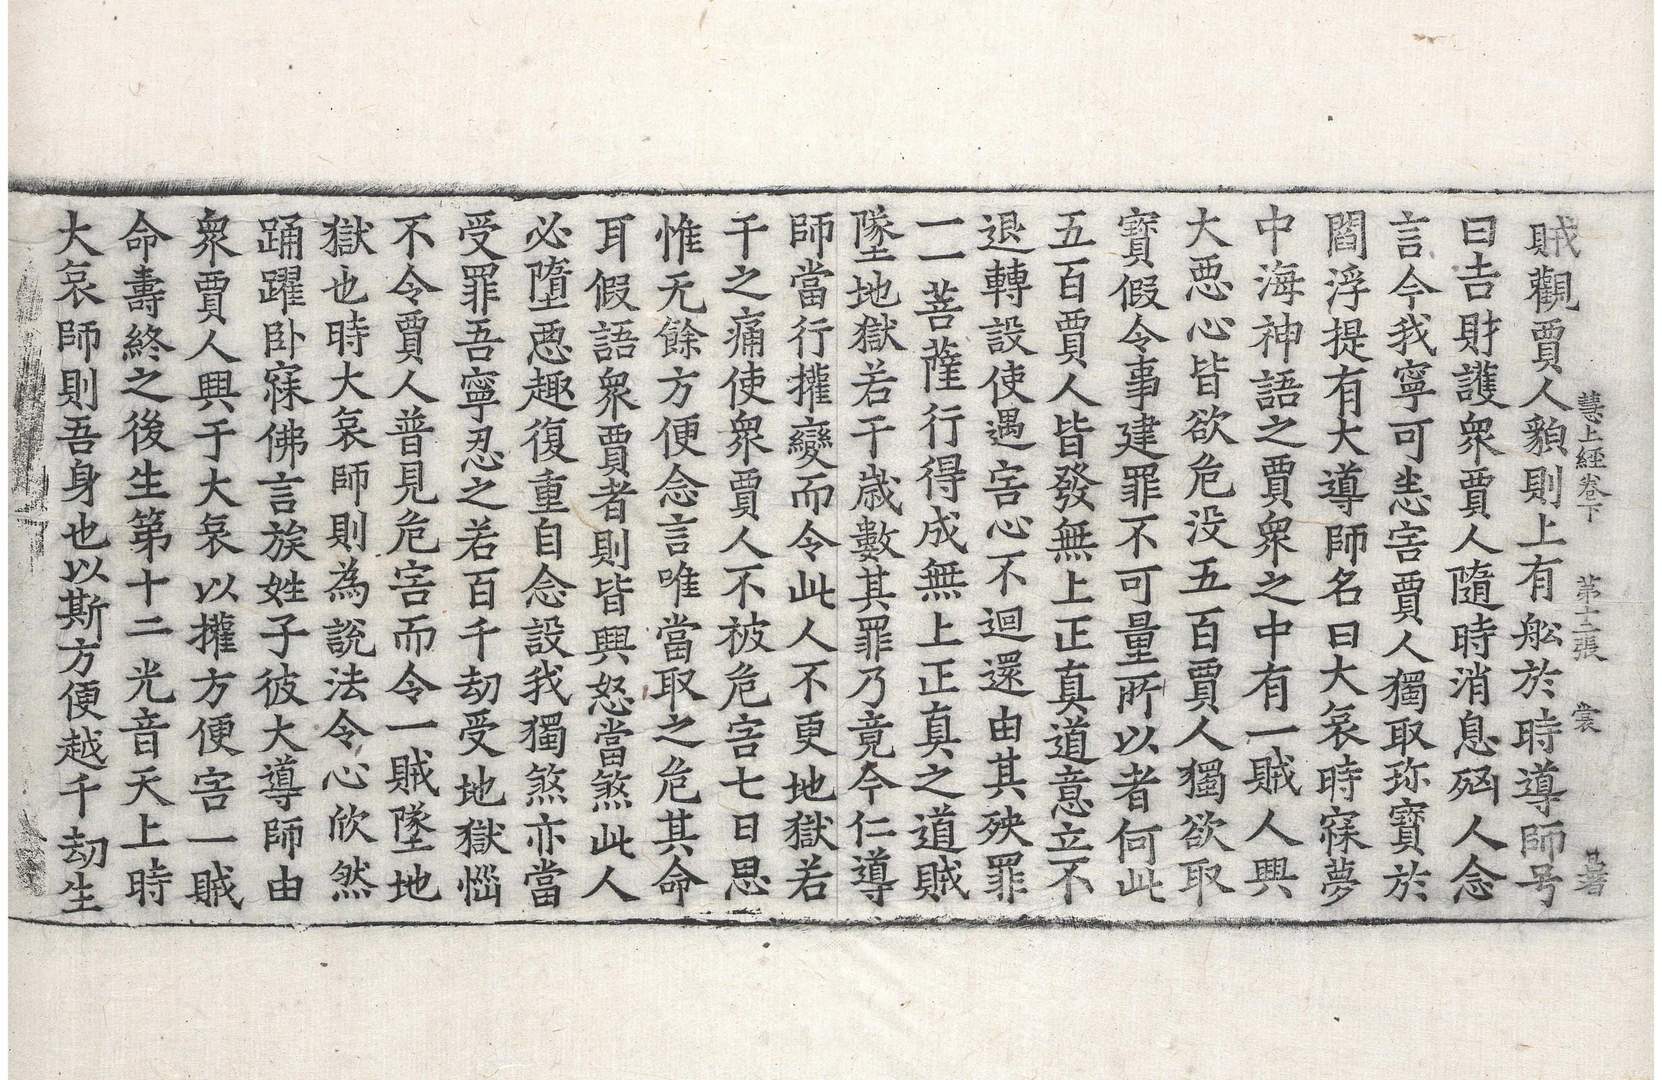 慧上經卷下 第十二張 裳
賊觀賈人貌則上有舩於時導師号
曰吉財護衆賈人隨時消息㐫人念
言今我寧可恙害賈人獨取珎寶於
閻浮提有大導師名曰大哀時寐夢
中海神語之賈衆之中有一賊人興
大惡心皆欲危没五百賈人獨欲取
寶假令事建罪不可量所以者何此
五百賈人皆發無上正真道意立不
退轉設使遇害心不迴還由其殃罪
一一菩薩行得成無上正真之道賊
墜地獄若干歳數其罪乃竟今仁導
師當行攉變而令此人不更地獄若
干之痛使衆賈人不被危害七日思
惟无餘方便念言唯當取之危其命
耳假語衆賈者則皆興怒當煞此人
必墮惡趣復重自念設我獨煞亦當
受罪吾寧忍之若百千劫受地獄惱
不令賈人普見危害而令一賊墜地
獄也時大哀師則為說法令心欣然
踊躍卧寐佛言族姓子彼大導師由
衆賈人興于大哀以攉方便害一賊
命壽終之後生第十二光音天上時
大哀師則吾身也以斯方便越千劫生